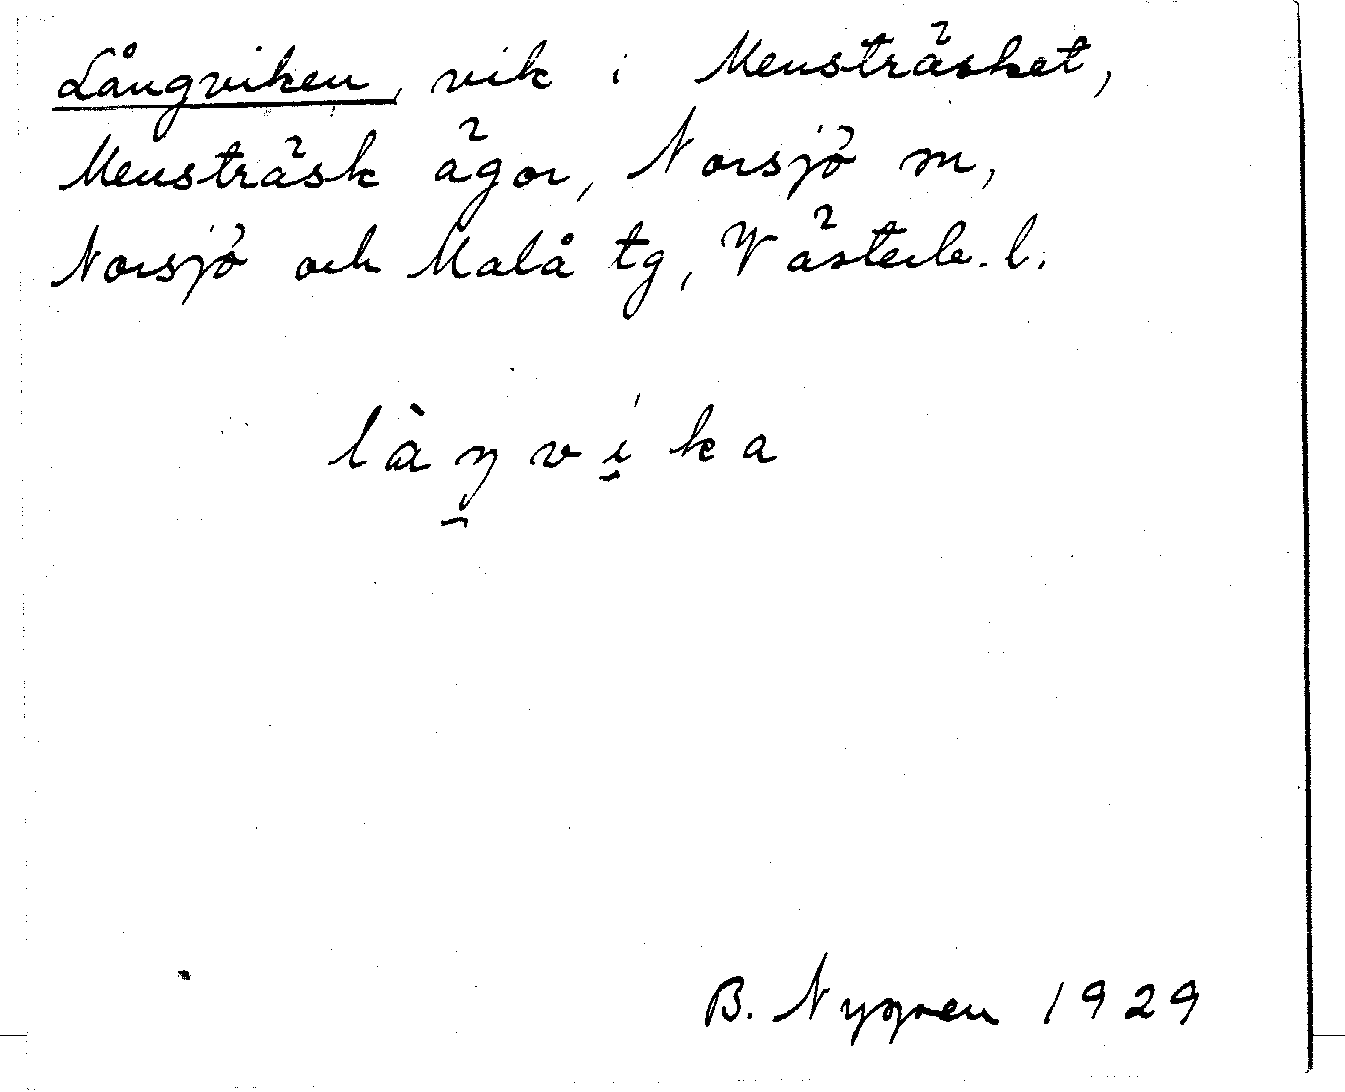 Långviken, vik i Mensträsket,
Mensträsk ägor, Norsjö sn,
Norsjö och Malå tg, Västerb. l.
làŋvi̠ka
B. Nygren 1929